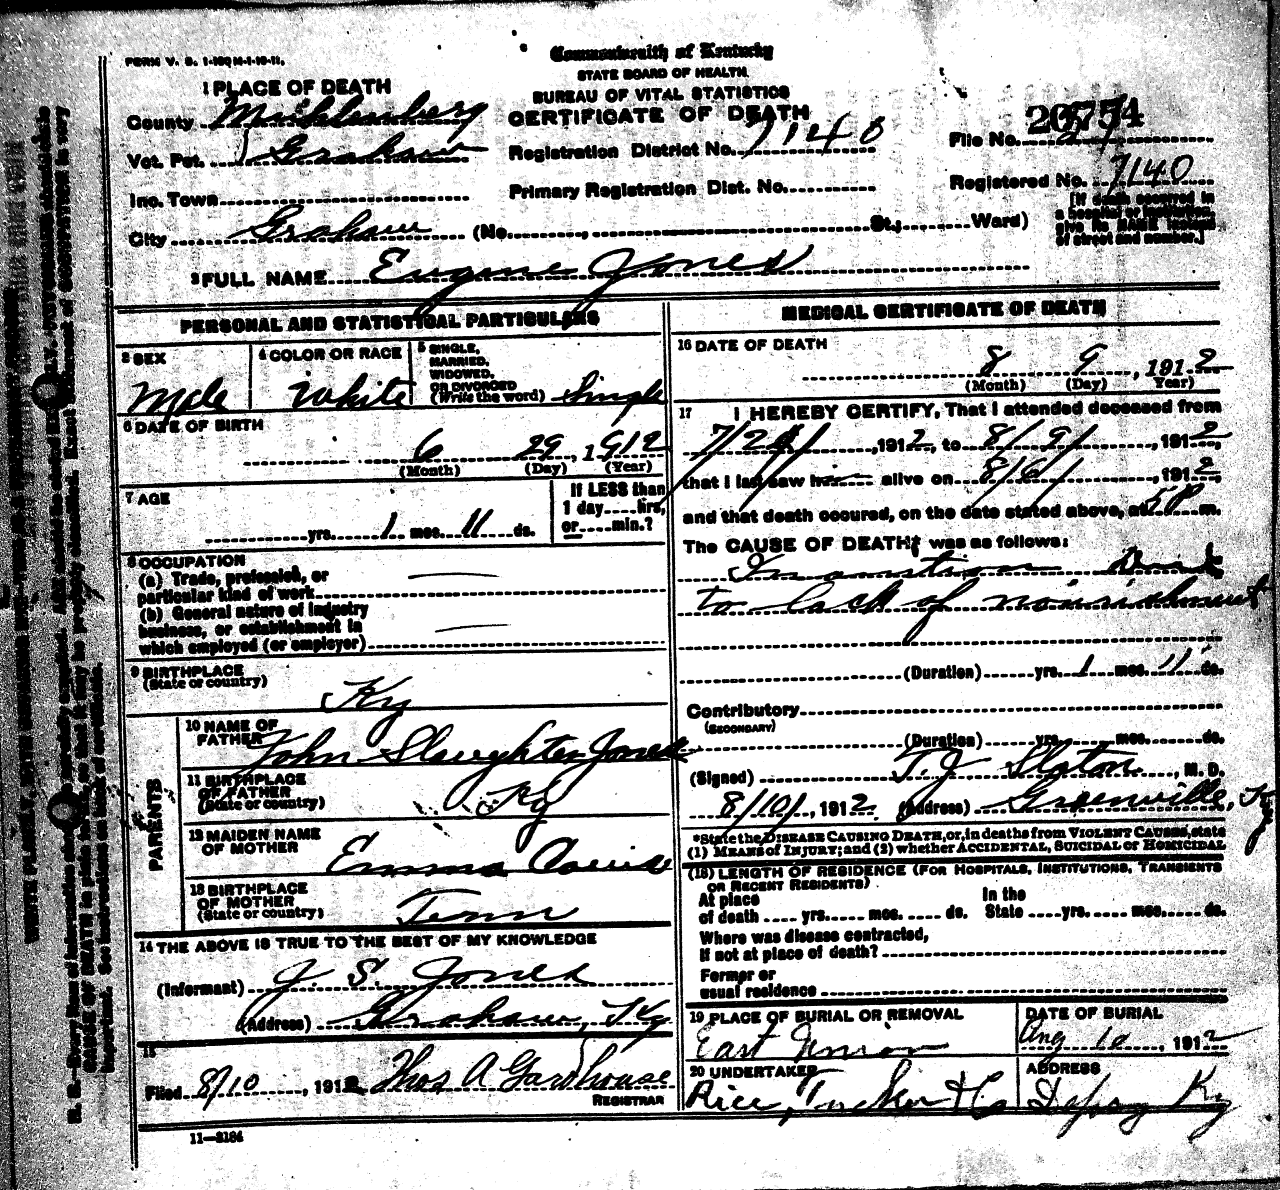 FORM V. S. 1-150M-1-10-11.
Commonwealth of Kentucky
STATE BOARD OF HEALTH
BUREAU OF VITAL STATISTICS
CERTIFICATE OF DEATH
1 PLACE OF DEATH
County Muhlenberg
Vot. Pct. Graham
Registration District No. 7140
File No. 20754
Inc. Town
Primary Registration Dist. No.
Registered No. 7140
City Graham (No. , St.; Ward)
[If death occurred in a hospital or institution give its NAME instead of street and number.]
2 FULL NAME Eugene Jones
PERSONAL AND STATISTICAL PARTICULARS
3 SEX
Male
4 COLOR OR RACE
White
5 SINGLE, MARRIED, WIDOWED, OR DIVORCED (Write the word) Single
6 DATE OF BIRTH
6 29, 1912
(Month) (Day) (Year)
7 AGE
yrs. 1 mos. 11 ds.
If LESS than 1 day hrs, or min.?
8 OCCUPATION
(a) Trade, profession, or particular kind of work
(b) General nature of industry business, or establishment in which employed (or employer)
9 BIRTHPLACE
(State or country)
Ky
PARENTS
10 NAME OF FATHER
John Slaughter Jones
11 BIRTHPLACE OF FATHER (State or country)
Ky
12 MAIDEN NAME OF MOTHER
Emma
13 BIRTHPLACE OF MOTHER (State or country)
Tenn
14 THE ABOVE IS TRUE TO THE BEST OF MY KNOWLEDGE
(Informant) J. S. Jones
(Address) Graham, Ky
15
Filed 8/10, 1912 Thos A
REGISTRAR
11-3184
MEDICAL CERTIFICATE OF DEATH
16 DATE OF DEATH
8 9, 1912
(Month) (Day) Year)
17 I HEREBY CERTIFY, That I attended deceased from
7/2 , 1912, to 8/9/, 1912,
that I last saw him alive on 8/6/, 1912,
and that death occured, on the date stated above, at 5 P m.
The CAUSE OF DEATH* was as follows:
Inanition Due
to lack of nourishment
(Duration) yrs. 1 mos. 11 ds.
Contributory
(SECONDARY)
(Duration) yrs. mos. ds.
(Signed) T. J Slaton, M. D.
8/10/, 1912 (Address) Greenville, Ky
*State the DISEASE CAUSING DEATH, or, in deaths from VIOLENT CAUSES, state
(1) MEANS of INJURY; and (2) whether ACCIDENTAL, SUICIDAL or HOMICIDAL
(18) LENGTH OF RESIDENCE (FOR HOSPITALS, INSTITUTIONS, TRANSIENTS
OR RECENT RESIDENTS)
At place of death yrs. mos. ds. In the State yrs. mos. ds.
Where was disease contracted,
If not at place of death?
Former or
usual residence
19 PLACE OF BURIAL OR REMOVAL
East Union
DATE OF BURIAL
Aug 10, 1912
20 UNDERTAKER
Rice, Tucker & Co
ADDRESS
Depoy Ky